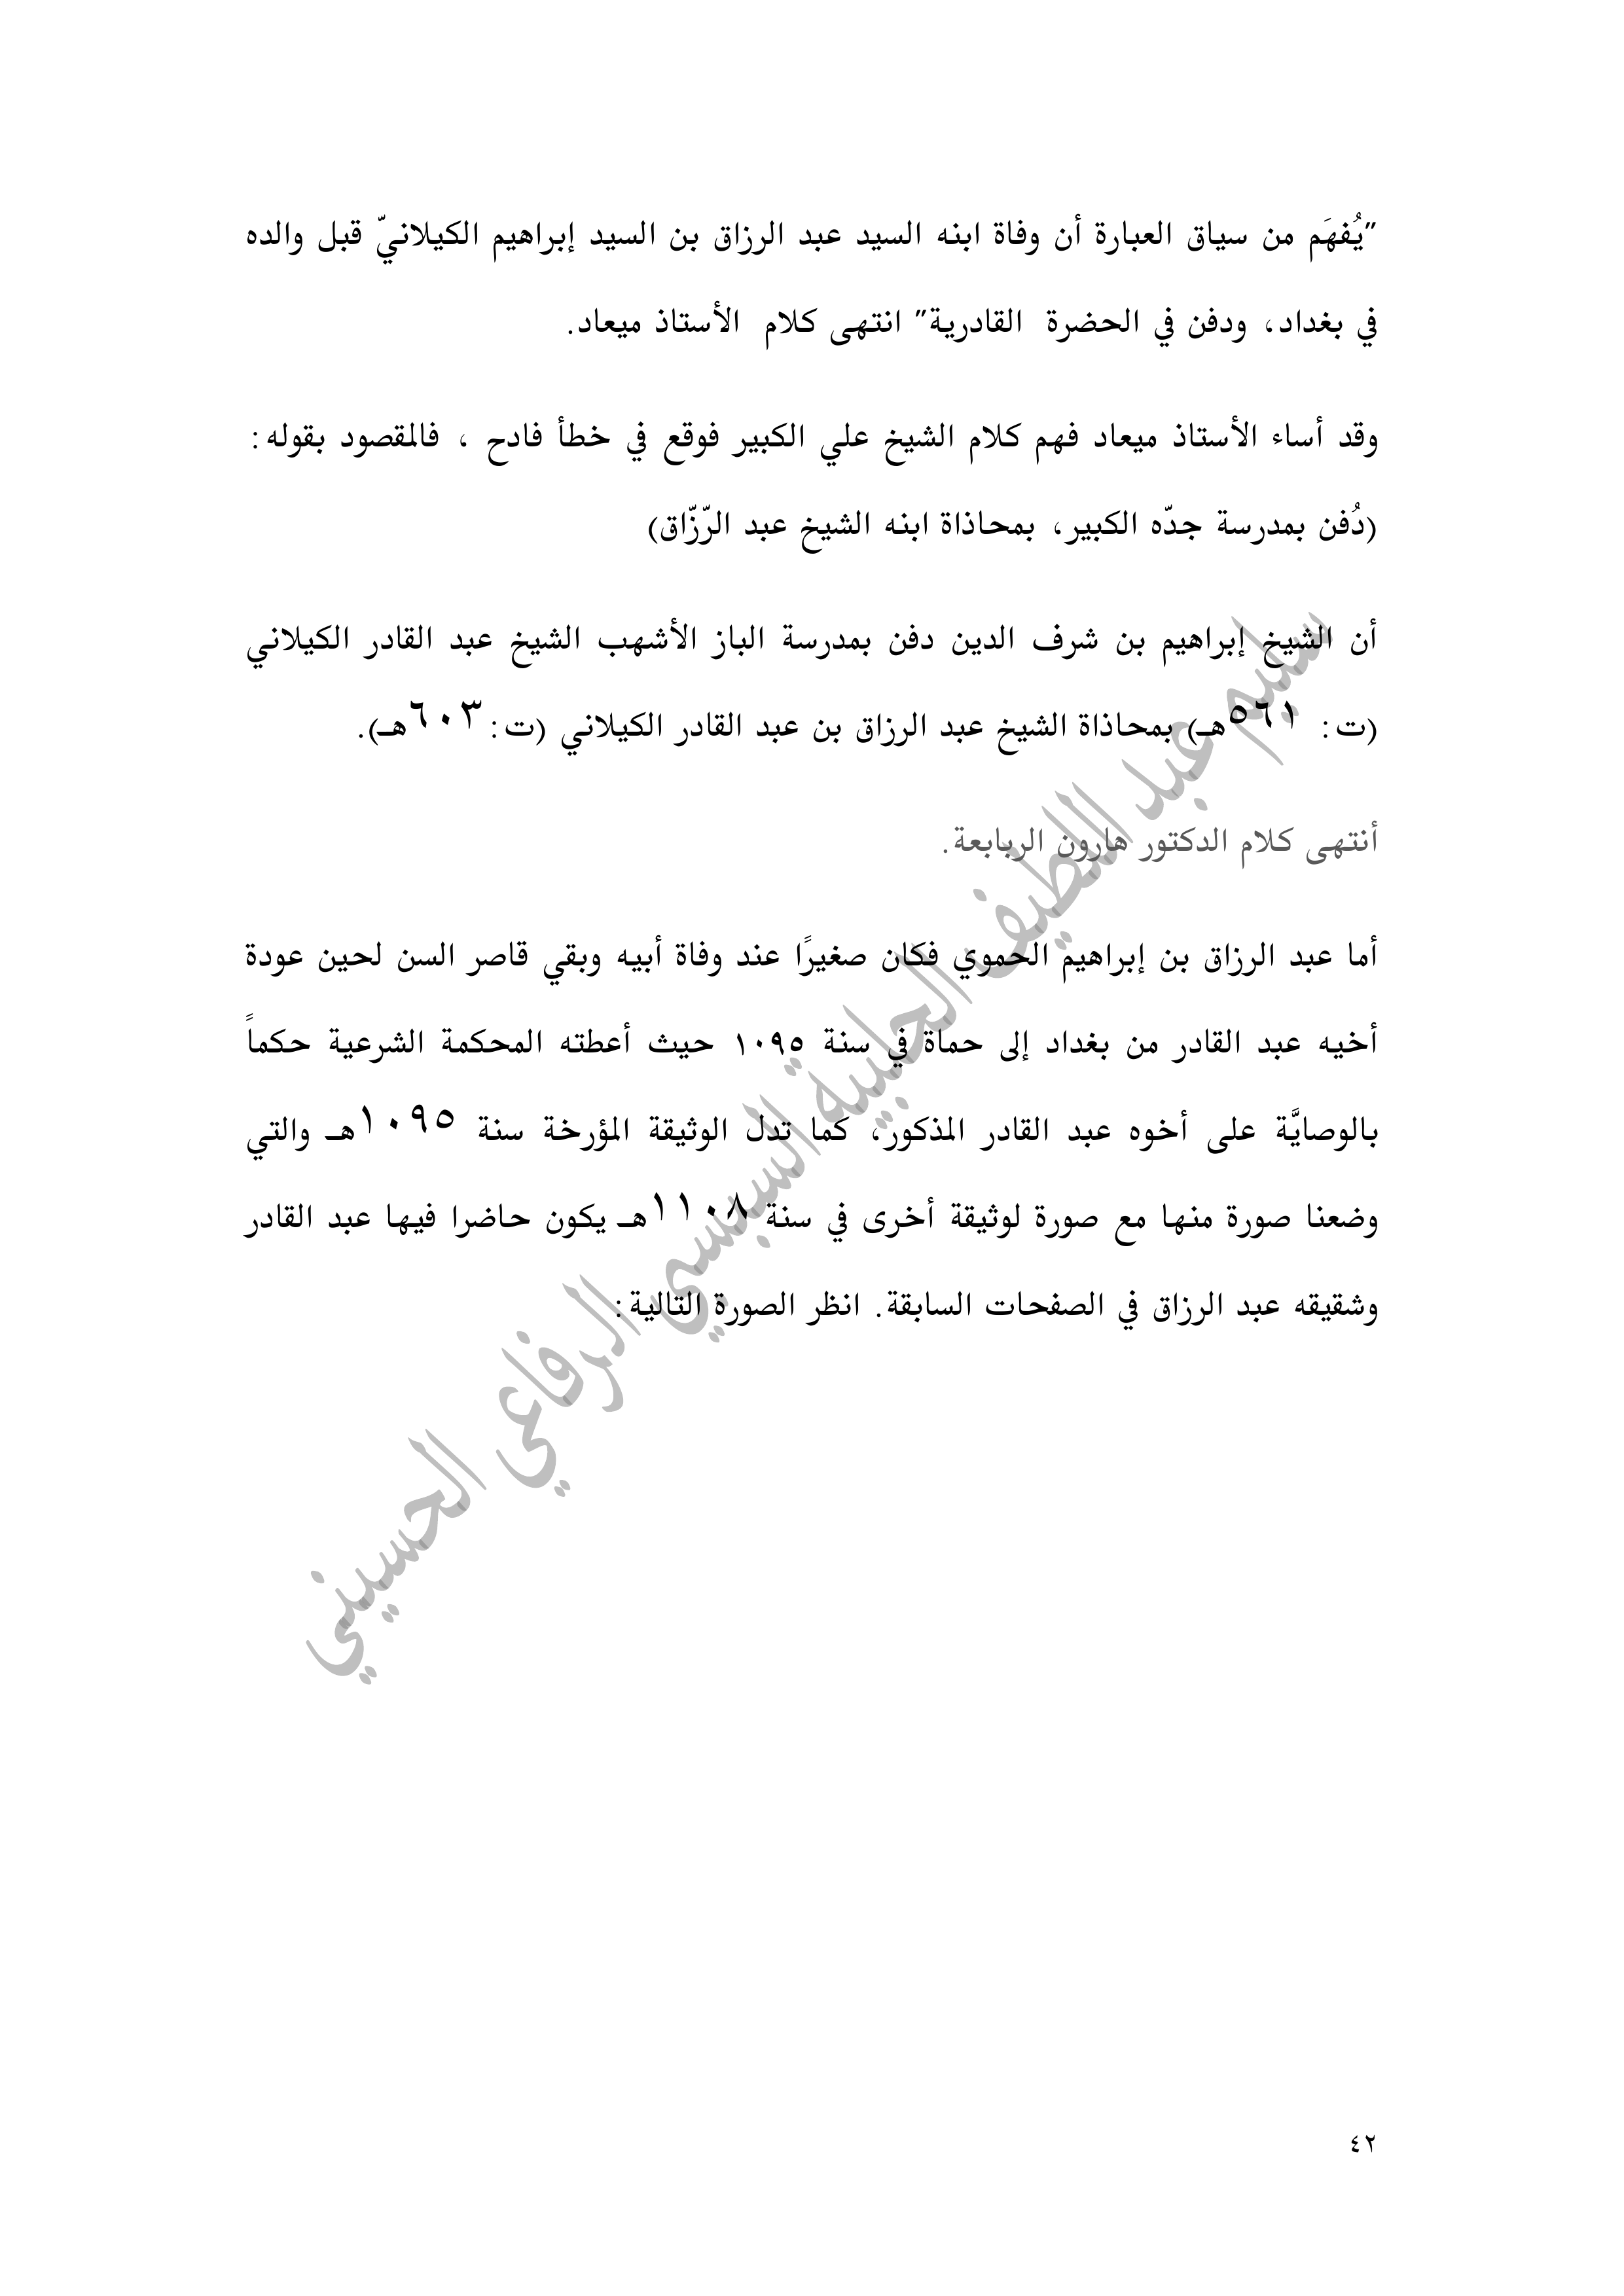 "يُفهَم من سياق العبارة أن وفاة ابنه السيد عبد الرزاق بن السيد إبراهيم الكيلانيّ قبل والده
في بغداد، ودفن في الحضرة القادرية" انتهى كلام الأستاذ ميعاد.
وقد أساء الأستاذ ميعاد فهم كلام الشيخ علي الكبير فوقع في خطأ فادح ، فالمقصود بقوله:
(دُفن بمدرسة جدّه الكبير، بمحاذاة ابنه الشيخ عبد الرّزّاق)
أن الشيخ إبراهيم بن شرف الدين دفن بمدرسة الباز الأشهب الشيخ عبد القادر الكيلاني
(ت: ٥٦١هـ) بمحاذاة الشيخ عبد الرزاق بن عبد القادر الكيلاني (ت:٦٠٣هـ).
أنتهى كلام الدكتور هارون الربابعة.
أما عبد الرزاق بن إبراهيم الحموي فكان صغيرًا عند وفاة أبيه وبقي قاصر السن لحين عودة
أخيه عبد القادر من بغداد إلى حماة في سنة ١٠٩٥ حيث أعطته المحكمة الشرعية حكماً
بالوصايَّة على أخوه عبد القادر المذكور، كما تدل الوثيقة المؤرخة سنة ١٠٩٥هـ والتي
وضعنا صورة منها مع صورة لوثيقة أخرى في سنة ١١٠٨هـ يكون حاضرا فيها عبد القادر
وشقيقه عبد الرزاق في الصفحات السابقة. انظر الصورة التالية:
سليم عبد اللطيف الحلبية السبسبي الرفاعي الحسيني
٤٢